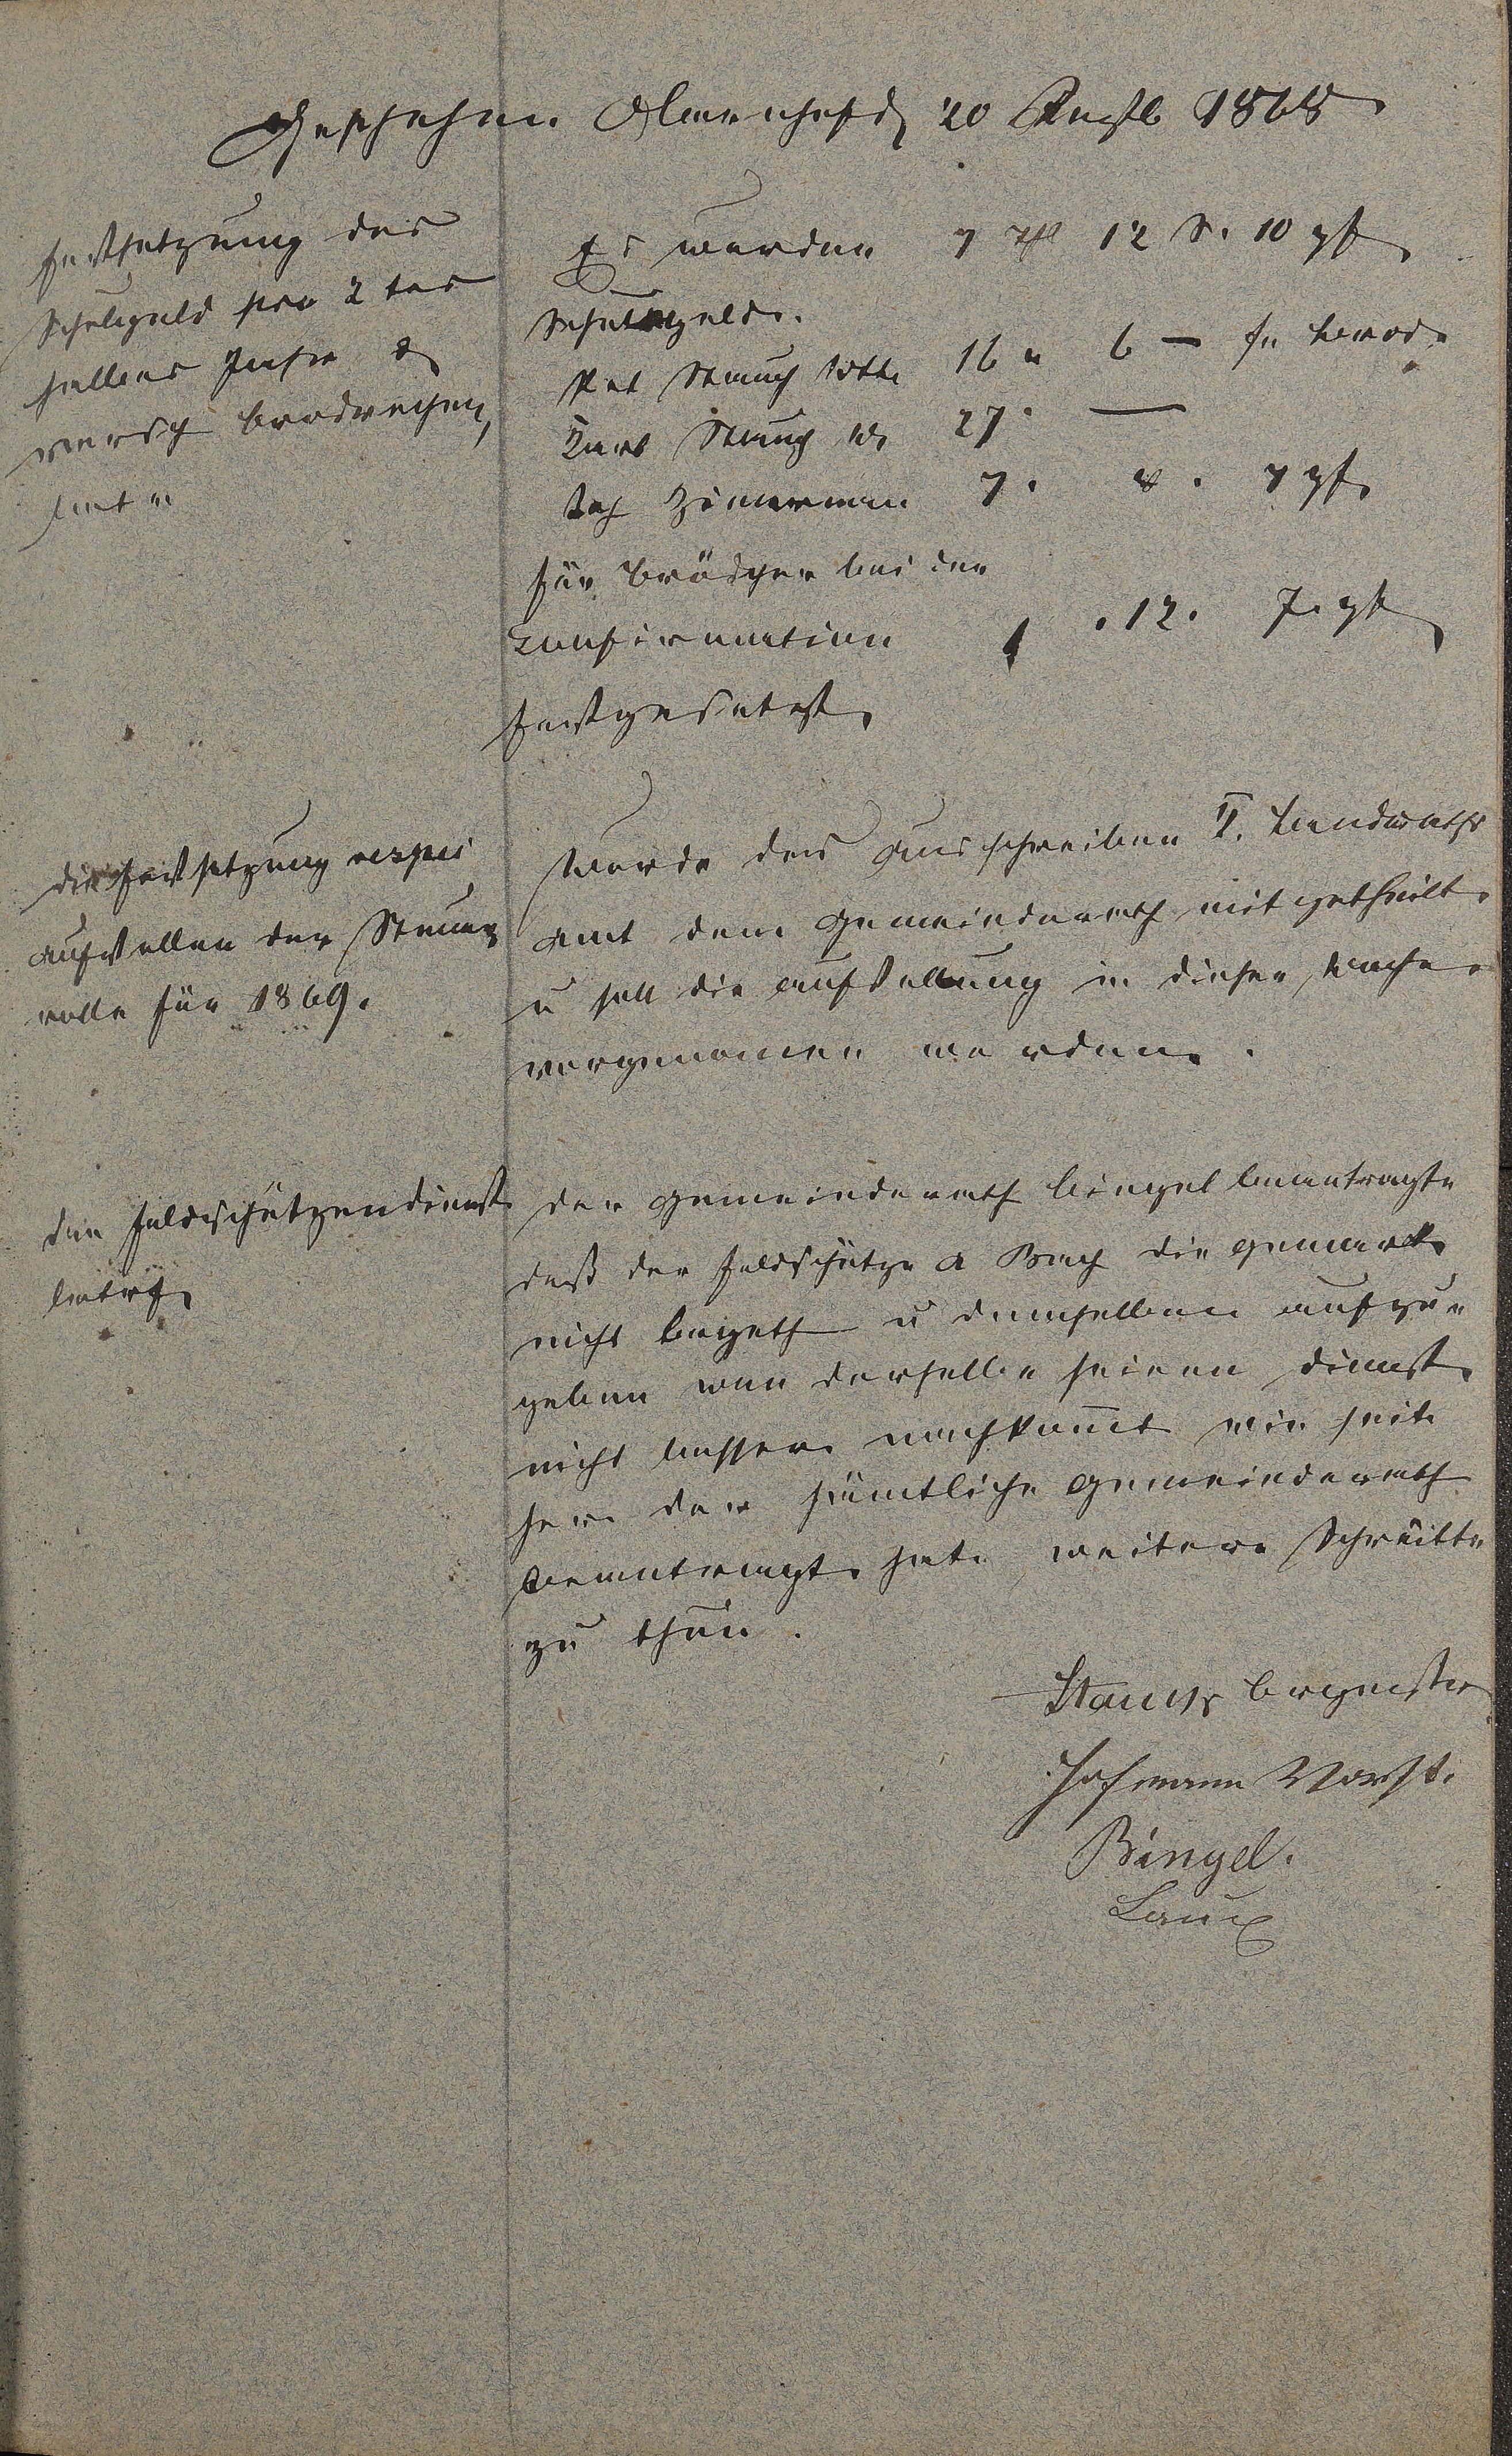 Geschehen 20 Augst 1868
Festsetzung des
Schulgeld pro 2 tes
halbes Jahr &
versch Brodrechen,
Es werden 7 Thl 12 S. 10 pf
Schulgeld.
Pet Stauch Wtt 16 " 6 — fr Brod.
Karl Stauch 27. —
Zimerman 7. 8. 7 pf.
für Brödger bei der
Confirmation 1 . 12. 7. pf
festgesetzt.
Die Festsetzung respei
aufstellen der Steuer
rolle für 1869.
Wurde das Ausschreiben Landraths
amt dem Gemeinderath mitgetheilt.
u soll die aufstellung in dieser Woche
vorgenomen werden.
den Feldschützendienst
betrf.
der Gemeinderath Bingel beantragte
daß der Feldschütze A Bach die Gemark
nicht begeth u demselben aufzu-
geben wen derselbe seinen Dienst
nicht besser nachkomt wie seit-
her der sämtliche Gemeinderath
beantragt hat, weitere Schritte
zu thun.
Stauch Brgmstr
Hofmann Vorst.
Bingel.
Laux